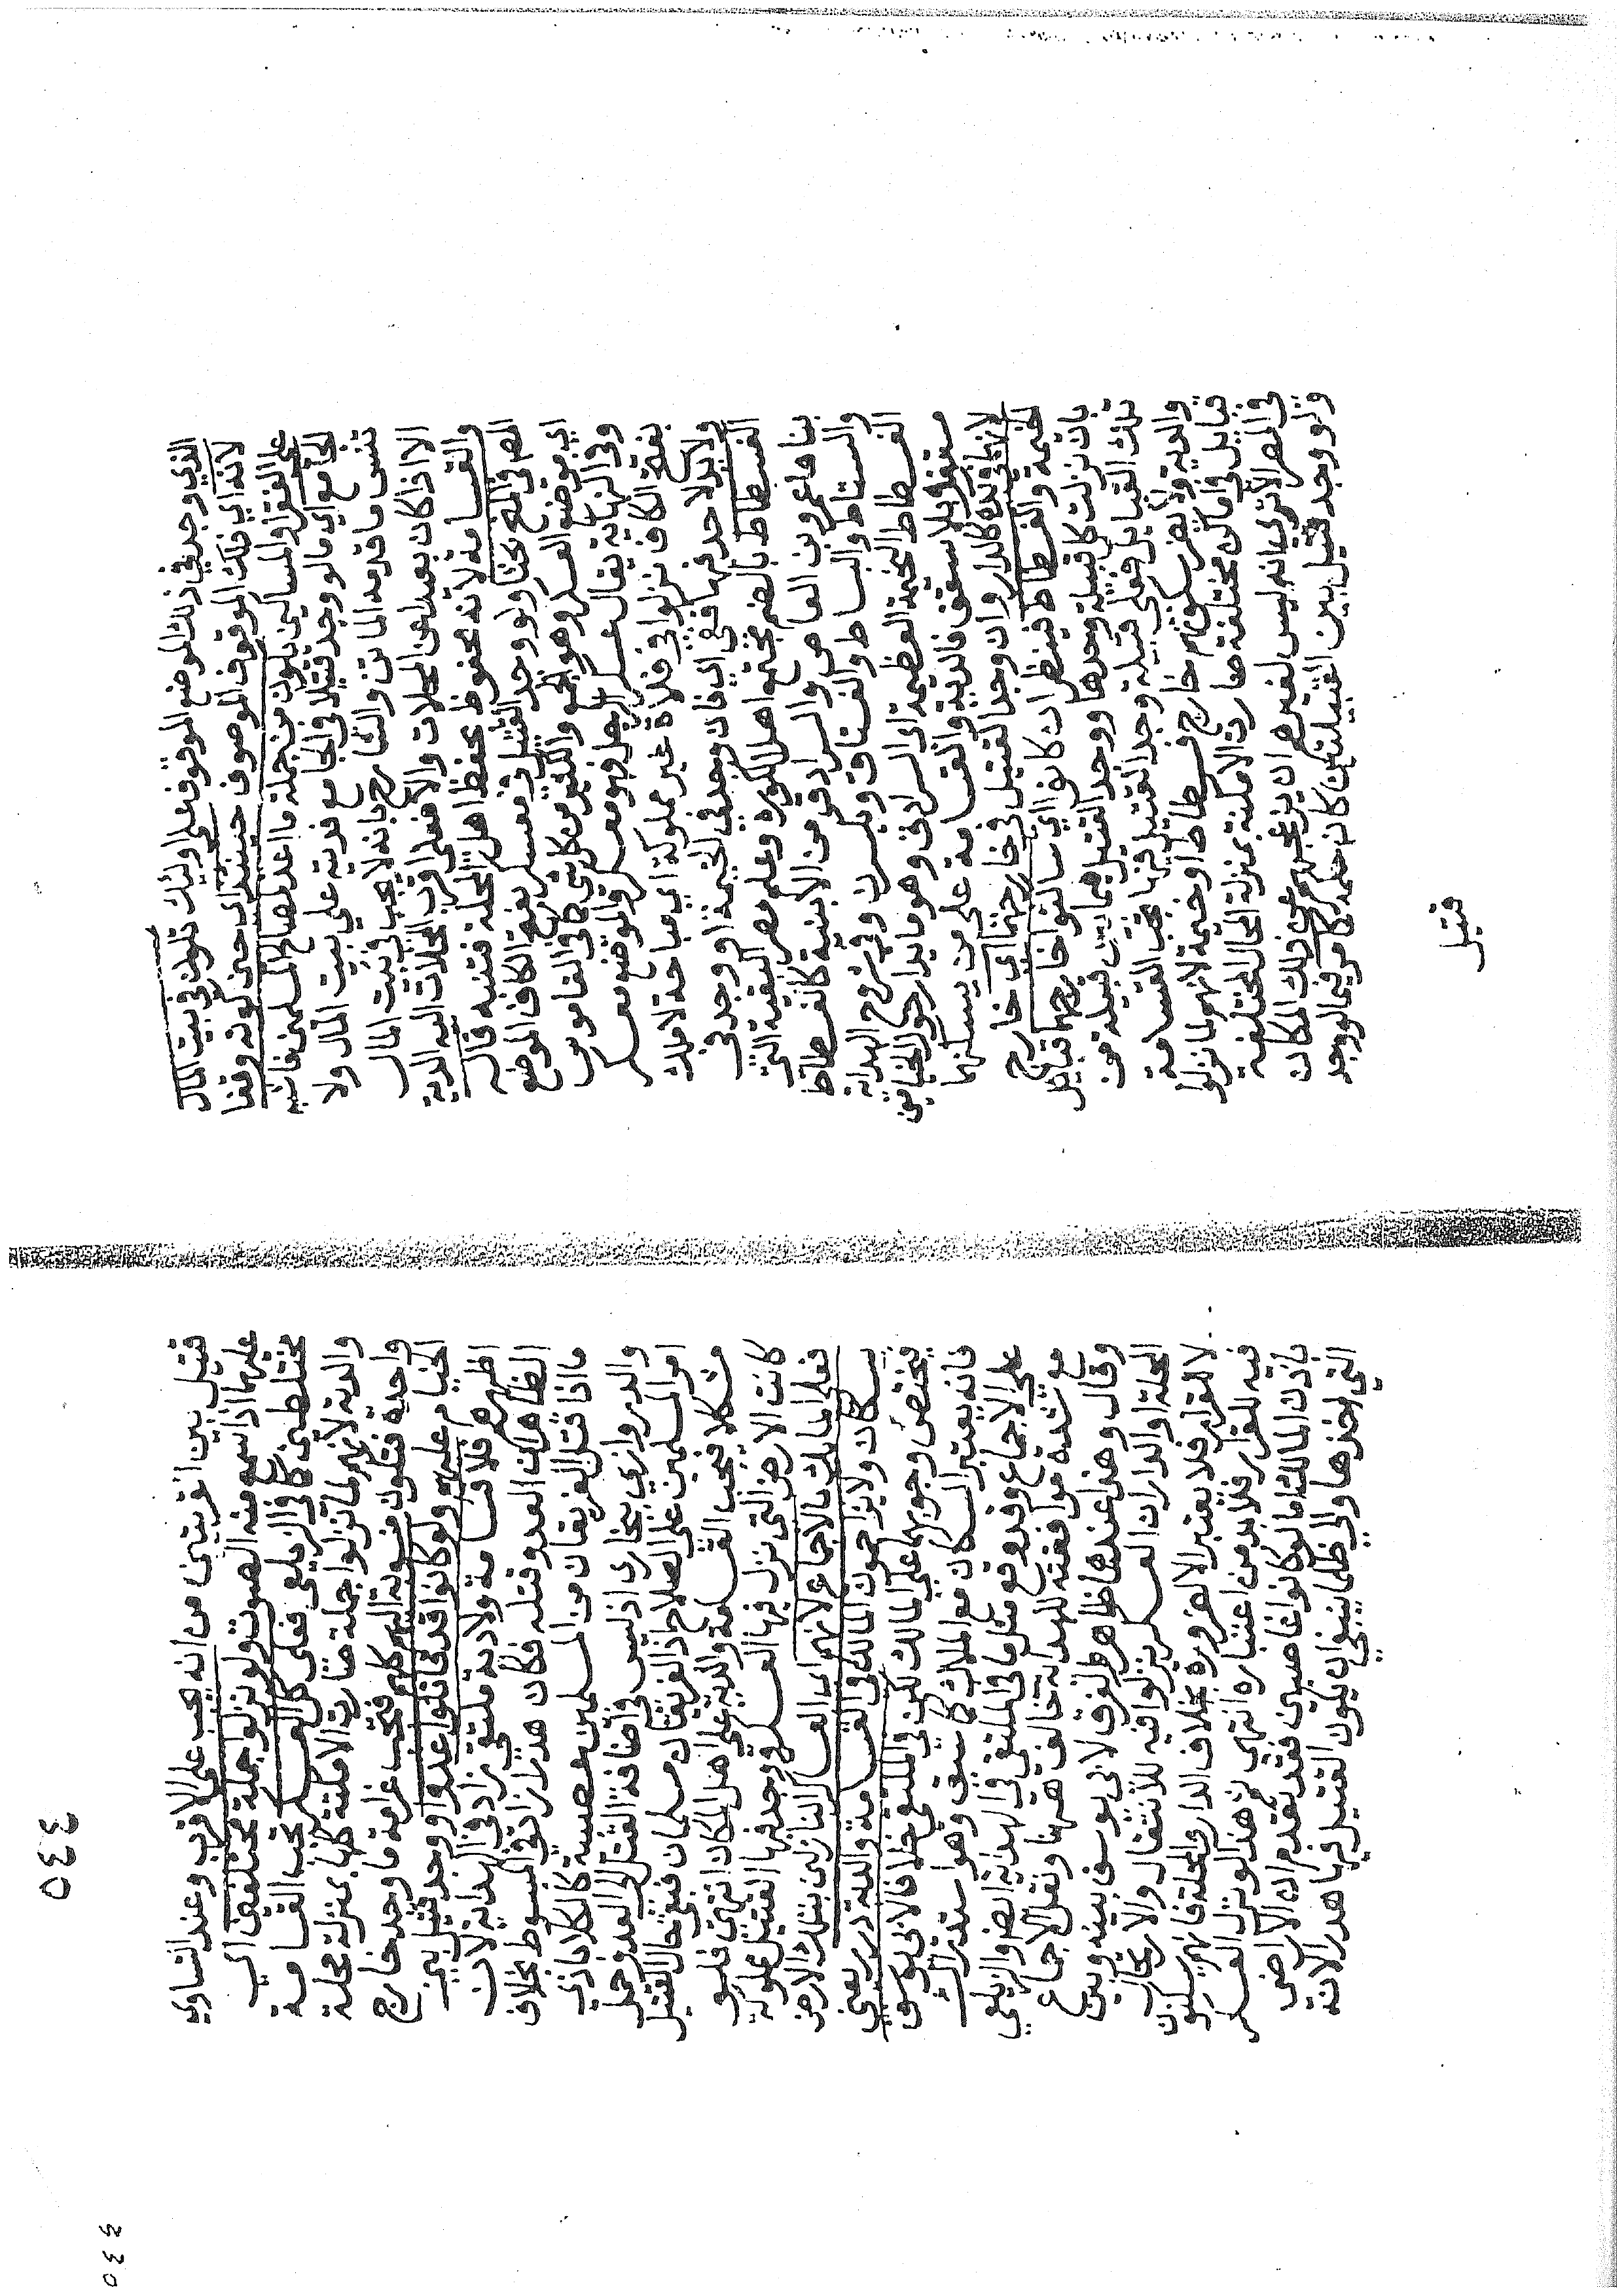 الذي وجد في ذلك الموضع الموقوف على اوليك تكون في بيت المال
لانه اي ذلك الموقوف الموصوف حينئذ اي حين كونه وقفا
على الفقرا والمساكين يكون من جملة ما اعد لمصالح المسلمين فاشبه
الجامع اي ما لو وجد قتيلا في الجامع فديته علي بيت المال ولا
تنس ما قدمه الماتن والشارح بانه لا يجب في بيت المال
الا اذا كان بعيدا عن المحلات والا فعلي اقرب المحلات اليه الدية
والقسامة لانه محفوظ بحفظ اهل المحلة فتنبه قاله
المص في المنح بحثا ولو وجد القتيل في معسكر بفتح الكاف الموضع
اي موضع العسكر وهو الجمع والكثير من كل شي كما في القاموس
وفي النهاية يقال عسكر الرجل فهو معسكر والموضع معسكر
بفتح الكاف نزلوا في فلاة غير مملوكة اي مباحة لا ملك
ولا يد لاحد فيها ففي اي فان وجد في الخيمة او وجد في
الفسطاط بالضم مجتمع اهل الكورة وعلم مصر العتيقة التي
بناها عمرو بن العاص والسرادق من الابنية كالفسطاط
والستاط والبساط والفستاق ويكسرن وفي شروح الهداية
الفسطاط الخيمة العظيمة اي السرادق وهو ما يدار حول الخيام من
سقف بلا سقف فالدية والقسامة على من يسكنها
لانها في يده كالدار وان وجد القتيل في خارجهما اي خارج
الخيمة والفسطاط فينظر ان كانوا اي ساكنوا خارجهما قبايل
بان نزلت كل قبيلة وحدها ووجد القتيل بين قبيلة من
تلك القبايل فعلى قبيلة وجد القتيل فيها تجب القسامة
والدية ولا يضر سكونهم خارج فسطاط او خيمة لانهم لما نزلوا
قبايل في اماكن مختلفة صارت الامكنة بمنزلة المحال المختلفة
في المصر الا ترى انه ليس لغيرهم ان يزعجهم عن ذلك المكان
ولو وجد قتيل بين القبيلتين كان حكمه كما مر فيما لو وجد
قتيل
٥٤٤
قتيل بين قريتين من انه يجب على الاقرب وعند التساوي
عليهما اذا سمع منه الصوت ولو نزلوا جملة مختلفين اي
مختلطين كما في الزيلعي فعلى كل العسكر تجب القسامة
والدية لانهم لما نزلوا جملة صارت الامكنة كلها بمنزلة محلة
واحدة فتكون منسوبة اليهم كلهم فتجب غرامة ما وجد خارج
الخيام عليهم ولو كانوا قد قاتلوا عدوا ووجد قتيل بين
اظهرهم فلا قسامة ولا دية ملتقى زاد في الهداية لان
الظاهر ان العدو قتله فكان هدرا زاد في المبسوط بخلاف
ما اذا قتل الفريقان من المسلمين عصبية كالكلاباذي
والدروازي بخارى اذ ليس في اضافة القتل الى العدو حمل
امر المسلمين على الصلاح اذ الفريقان مسلمان فبقي حال القتيل
مشكلا فيجب القسامة والدية على اهل المكان انتهى فلو
كانت الارض التي نزل فيها العسكر ووجد فيها القتيل مملوكة
فعلى المالك بالاجماع لانهم اي العساكر النازلين بتلك الارض
سكان ولا يزاحمون المالك في القسامة والدية درر يعني
فيختص وجوبهما على المالك لكن في الملتقى خلافا لابي يوسف
فانه يعتبر السكان مع الملاك كما سبق وهو استدراك
على الاجماع وقد وقع مثل ما في الملتقى في الهداية الضو والزيلعي
مع شدة موافقته للهداية خالف ههنا ونقل الاجماع
وقال وهذا عندهما ظاهر الفرق لابي يوسف بينه وبين
المحلة او الدار ان العسكر نزلوا فيه للانتقال والارتحال
لا للقرار فلا يعتبر الا لضرورة بخلاف الدار والمحلة فانهم يسكنون
فيه للقرار فلا بد من اعتباره انتهى ثم هذا لو نزل العسكر
باذن المالك اما لو كانوا غاصبين فقد تقدم ان الاراضي
التي اخذها والي ظلما ينبغي ان يكون القتيل فيها هدرا لانه
٥٤٤